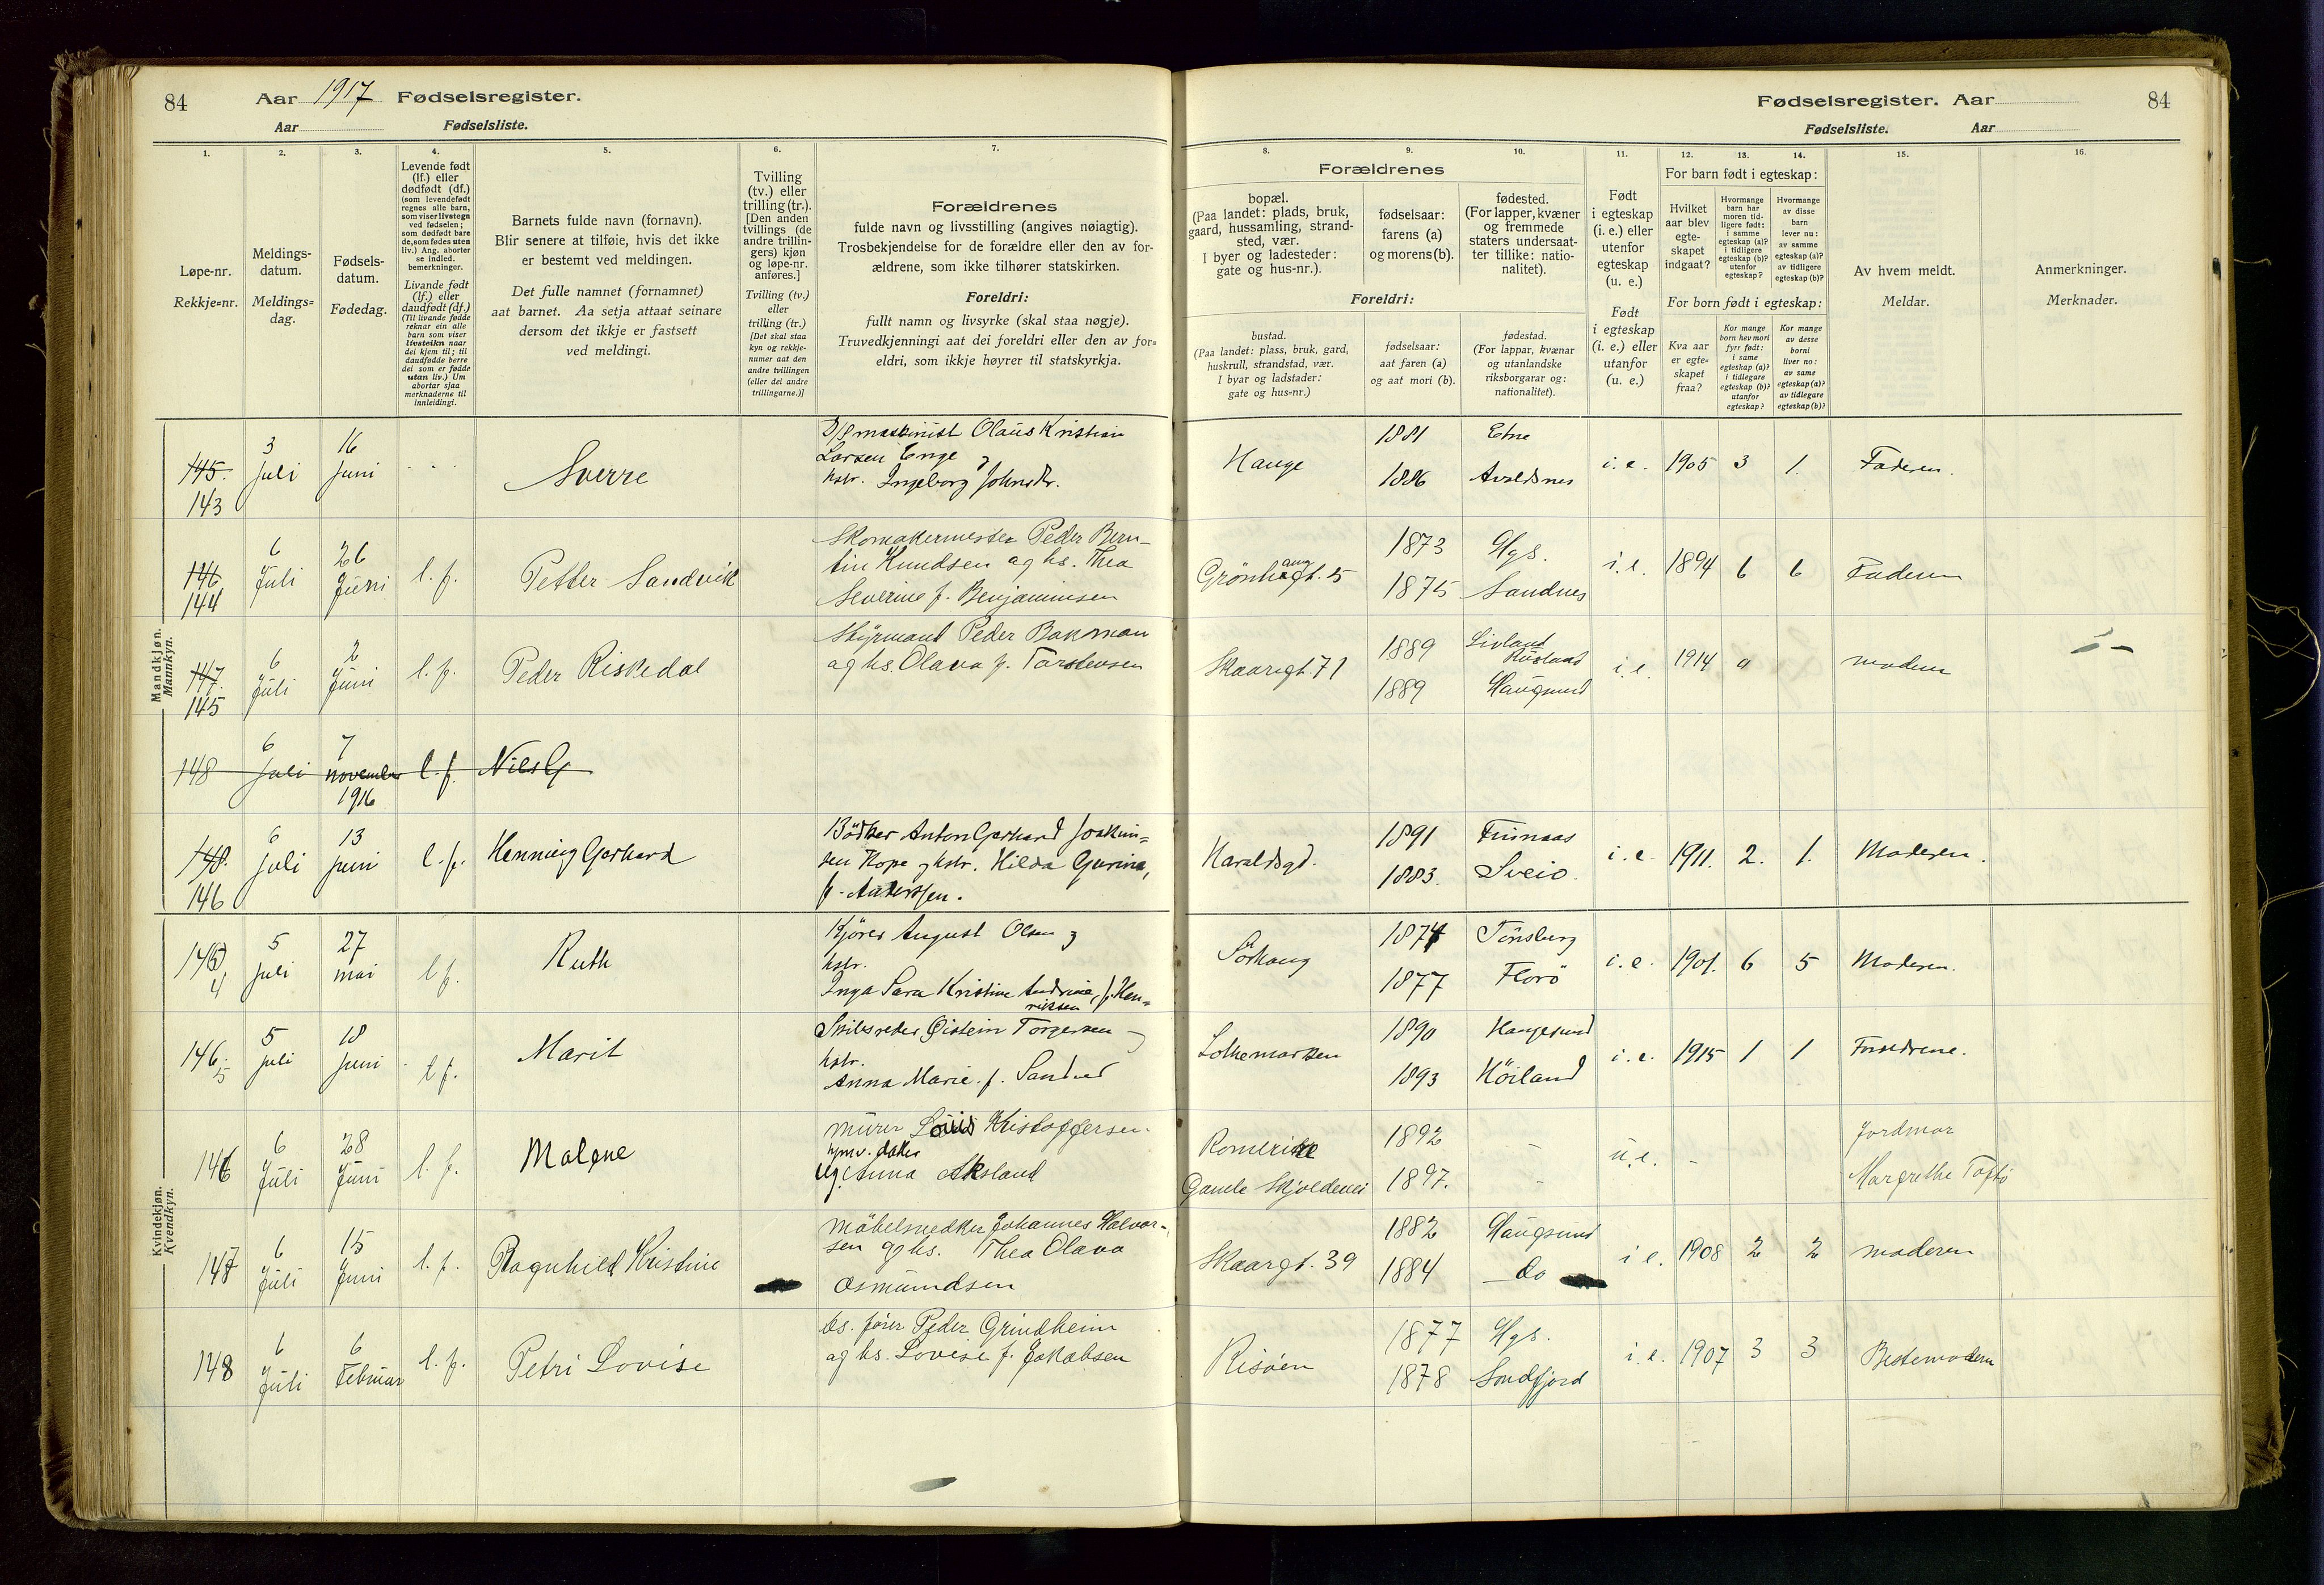 84 Aar 1917 Fødselsregister.
Aar Fødselsliste.
Fødselsregister. Aar 84
Fødselsliste. Aar
1.
Løpe-nr.
Rekkje=nr.
2.
Meldings-
datum.
Meldings=
dag.
3.
Fødsels-
datum.
Fødedag.
4.
Levende født
(lf.) eller
dødfødt (df.)
(som levendefødt
regnes alle barn,
som viser livstegn
ved fødselen;
som dødfødt bare
de, som fødes uten
liv.) Ang. aborter
se indled.
bemerkninger.
Livande født
(lf.) eller
daudfødt (df.)
(Til livande fødde
reknar ein alle
barn som viser
livsteikn naar
dei kjem til; til
daudfødde berre
dei som er fødde
utan liv.) Um
abortar sjaa
merknaderne til
innleidingi.
5.
Barnets fulde navn (fornavn).
Blir senere at tilføie, hvis det ikke
er bestemt ved meldingen.
Det fulle namnet (fornamnet)
aat barnet. Aa setja attaat seinare
dersom det ikkje er fastsett
ved meldingi.
6.
Tvilling
(tv.) eller
trilling (tr.).
[Den anden
tvillings (de
andre trillin-
gers) kjøn
og løpe-nr.
anføres.]
Tvilling (tv.)
eller
trilling (tr.)
[Det skal staa
kyn og rekkje-
numer aat den
andre tvillingen
(eller dei andre
trillingarne.)]
7.
Forældrenes
fulde navn og livsstilling (angives nøiagtig).
Trosbekjendelse for de forældre eller den av for-
ældrene, som ikke tilhører statskirken.
Foreldri:
fullt namn og livsyrke (skal staa nøgje).
Truvedkjenningi aat dei foreldri eller den av for=
eldri, som ikkje høyrer til statskyrkja.
Forældrenes
8.
bopæl.
(Paa landet: plads, bruk,
gaard, hussamling, strand-
sted, vær.
I byer og ladesteder:
gate og hus-nr.).
9.
fødselsaar:
farens (a)
og morens (b).
10.
fødested.
(For lapper, kvæner
og fremmede
staters undersaat-
ter tillike: natio-
nalitet).
Foreldri:
bustad.
(Paa landet: plass, bruk, gard,
huskrull, strandstad, vær.
I byar og ladstader:
gate og hus=nr.)
fødselsaar:
aat faren (a)
og aat mori (b).
fødestad.
(For lappar, kvænar
og utanlandske
riksborgarar og:
nationalitet).
11.
Født
i egteskap
(i. e.) eller
utenfor
egteskap
(u. e.)
Født
i egteskap
(i. e.) eller
utanfor
(u. e.)
12. 13. 14.
For barn født i egteskap:
Hvilket
aar blev
egte-
skapet
indgaat?
Hvormange
barn har
moren tid-
ligere født:
i samme
egteskap (a)?
i tidligere
egteskap (b)?
utenfor
egteskap?
Hvormange
av disse
barn
lever nu:
av samme
egteskap (a)?
av tidligere
egteskap (b)?
For born født i egteskap:
Kva aar
er egte-
skapet
fraa?
Kor mange
born hev mori
fyrr født:
i same
egteskap (a)?
i tidlegare
egteskap (b)?
utanfor
egteskap?
Kor mange
av desse
borni
liver no:
av same
egteskap (a)?
av tidlegare
egteskap (b)?
15.
Av hvem meldt.
Meldar.
16.
Anmerkninger.
Merknader.
Mandkjøn.
Mankyn.
145. 143 3 Juli 16 Juni Sverre
maskinist Olaus Kristian
Larsen Enge
hstr. Ingeborg Johnsdr.
Hauge 1881 Etne
1886 Avaldsnes i. e. 1905 3 1. Faderen.
146 144 6 Juli 26 Juni l. f. Petter Sandvik
Skomakermester Peder Bern-
tin Knudsen og hs. Thea
Severine f. Benjaminsen
Grönhaugt. 15 1873 Hgs.
1875 Sandnes i. e. 1894 6 6 Faderen
147. 145 6 Juli 2 Juni l. f. Peder Riskedal
Styrmand Peder Bakman
og hs. Olava f. Torstensen
Skaaregt. 71 1889 Livland Rusland
1889 Haugsund i. e. 1914 0 modern
148 6 Juli 7 november 1916 l. f. Niels G
148. 146 6 Juli 13 Juni l. f. Henning Gerhard
Bödker Anton Gerhard Joakim=
sen Hope og hstr. Hilda Gurina,
f. Anderssen.
Haraldsgd. 1891 Finnaas
1883. Sveio. i. e. 1911. 2. 1. Moderen.
Kvindekjøn.
Kvendkyn.
145 4 5 Juli 27 mai l f. Ruth
Kjörer August Olsen
hstr.
Inga Sara Kristine Andrine, f. Hen=
riksen
Sörhaug 1874 Tönsberg
1877 Florö i. e. 1901. 6 5 Moderen.
146. 5 5 Juli 18 Juni l f. Marit
Skibsreder Øistein Torgersen
hstr.
Anna Marie. f. Sandved
Lothemarken 1890 Haugesund
1893 Höiland i. e. 1915 1 1 Forældrene.
146 6 Juli 28 Juni l. f. Malene
Murer Louis Kristoffersen.
ugm. v. dater
ug. Anna Aksland
Romerike 1892 -
Gamle Skjoldevei 1897. - u. e. - Jordmor
Margrethe Toftö
147 6 Juli 15 Juni l. f. Ragnhild Kristine
Möbelsnedker Johannes Halvor-
sen og hs. Thea Olava
Osmundsen
Skaargt. 39 1882 Haugsund
1884 do i e. 1908 2 2 moderen
148 6 Juli 6 Februar l. f. Petri Lovise
bs. fører Peder Grindheim
og hs. Lovise f. Jakobsen
Risöen 1877 Hgs.
1878 Sondfjord i. e. 1907 3 3 Bestemodern